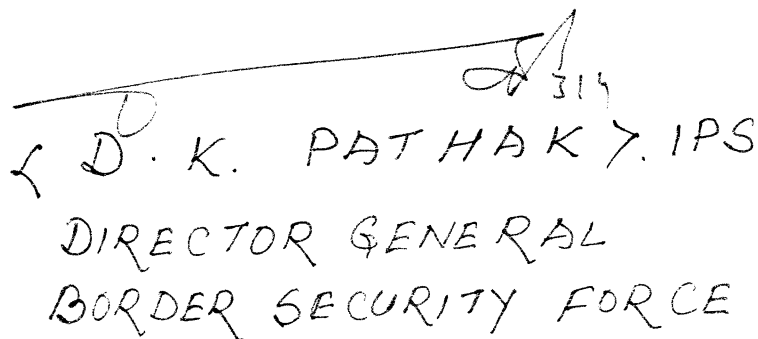 3/4
< D. K. PATHAK >. IPS
DIRECTOR GENERAL
BORDER SECURITY FORCE